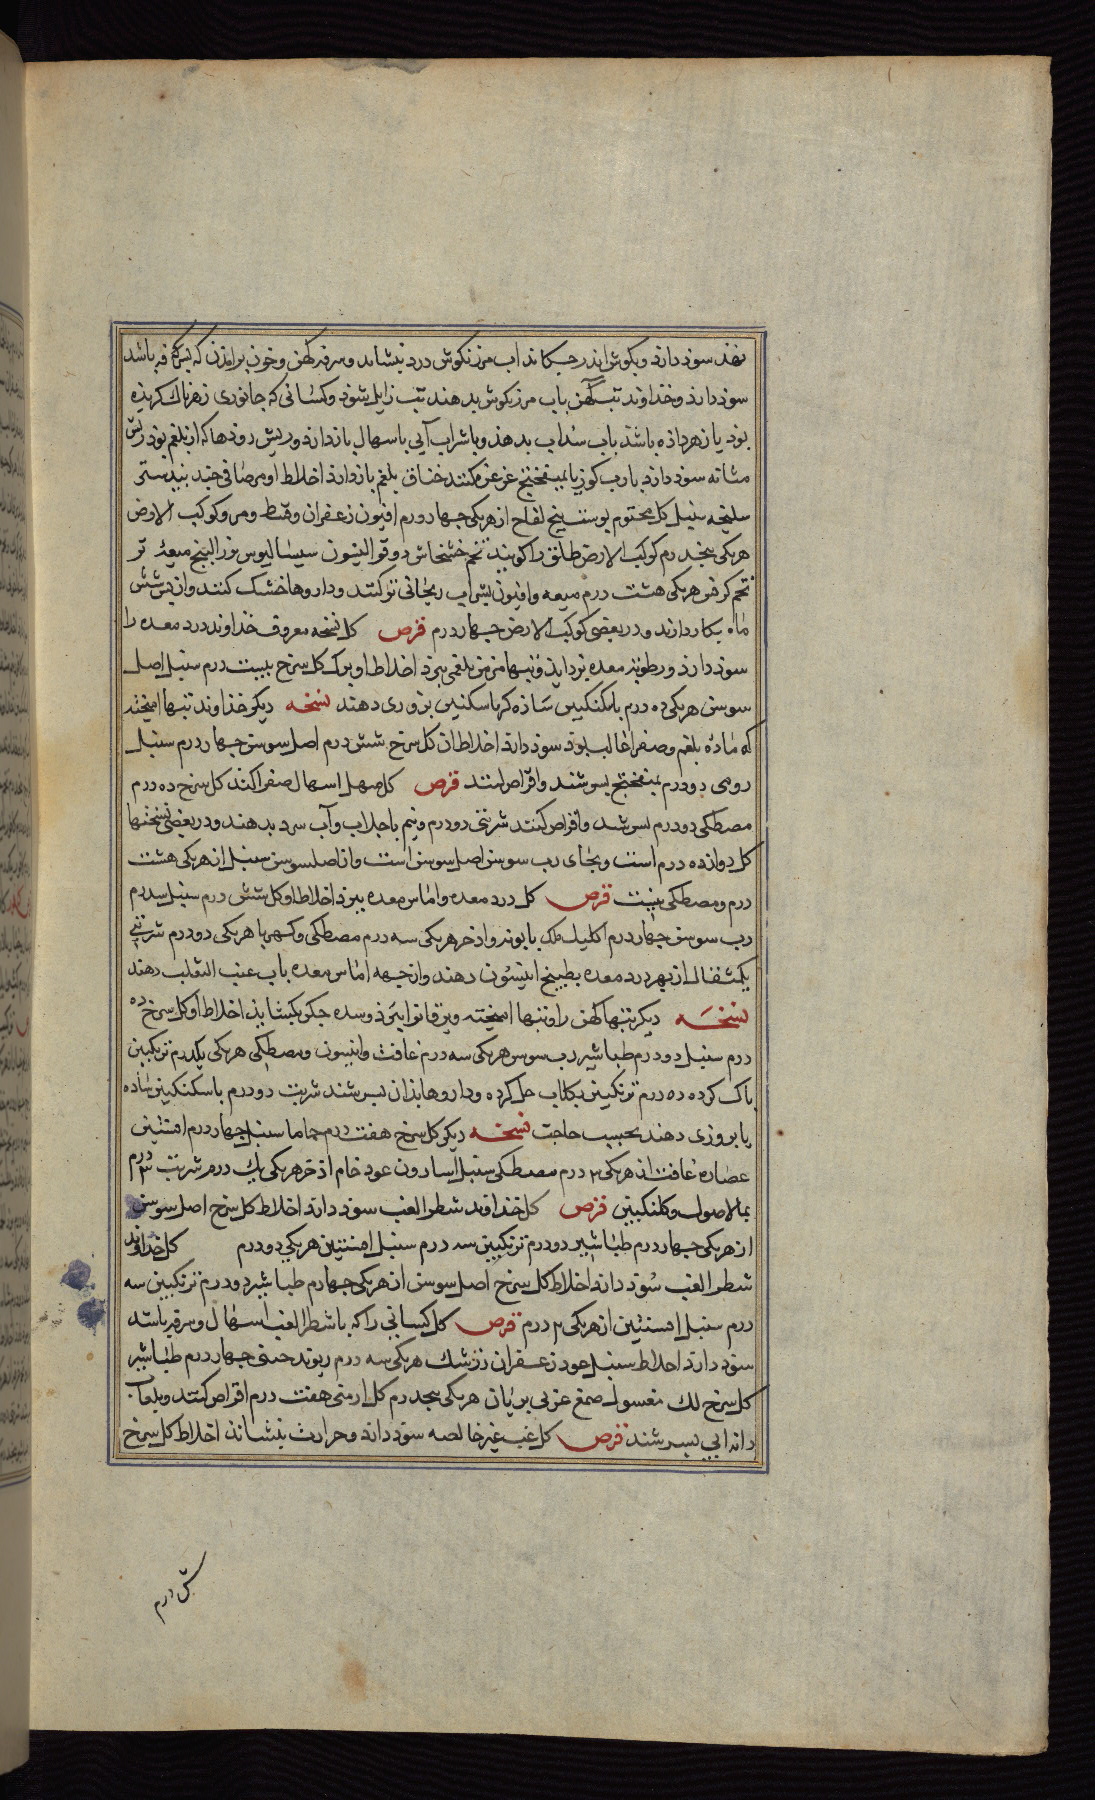 نهند سود دارد وبکوش اندر چکانند اب مرزنکوش درد بنشاند وسرفه کهن وخون برامدن که بس کم فه باشد
سود دارد وخداوند تب کهن باب مرزنکوش بدهند تب زایل شود وکسانی که جانوری زهرناک کزیده
بود یا زهر داده باشند باب سداب بدهند وباشراب آبی باسهال بازدارد وریش رودها که از بلغم بود وریش
مثانه سود دارد بارب کوز یا بمیفختج غرغره کنند خناق بلغم بازدارد اخلاط او مرصافی جند بیدستر
سلیخه سنبل کل مختوم پوست بیخ لفاح از هریکی چهار درم افیون زعفران وقسط ومر وکوکب الارض
هریکی پنجدرم کوکب الارض طلق را کویند تخم خشخاش دوقو انیسون سیسالیوس بزر البنج میعۀ تر
تخم کرفس هریکی هشت درم میعه وافیون بشراب ریحانی تر کنند وداروها خشک کنند واز پس شش
ماه بکار دارند ودر بعضی کوکب الارض چهار درم قرص کل نسخه معروف خداوند درد معده را
سود دارد ورطوبت معده بزداید وتبها مزمن بلغمی ببرد اخلاط او برک کل سرخ بیست درم سنبل اصل
سوسن هریکی ده درم باکلنکبین ساده کر باسکنکبین بزوری دهند نسخه دیکر خداوند تبها امیخته
که ماده بلغم وصفرا غالب بود سود دارد اخلاط ان کل سرخ شش درم اصل سوسن چهار درم سنبل
رومی دو درم بمیفختج بسرشند واقراص کنند قرص کل مسهل اسهال صفرا کند کل سرخ ده درم
مصطکی دو درم بسرشند واقراص کنند شربتی دو درم ونیم باجلاب وآب سرد بدهند ودر بعضی نسختها
کل دوازده درم است وبجای رب سوسن اصل سوسن است واز اصل سوسن سنبل از هریکی هشت
درم ومصطکی نیست قرص کل درد معده واماس معده ببرد اخلاط او کل شش درم سنبل سه درم
رب سوسن چهار درم اکلیل ملک بابونه واذخر هریکی سه درم مصطکی وکهربا هریکی دو درم شربتی
یکمثقال از بهر درد معده بطبیخ انیسون دهند واز جهه اماس معده باب عنب الثعلب دهند
نسخه دیکر تبها کهن را وتبها امیخته ویرقان را ببرد وسده جکر بکشاید اخلاط او کل سرخ ده
درم سنبل دو درم طباشیر رب سوس هریکی سه درم غافت وانیسون ومصطکی هریکی یکدرم ترنکبین
پاک کرده ده درم ترنکبین بکلاب حل کرده وداروها بذان بسرشند شربت دو درم باسکنکبین ساده
یا بزوری دهند بحسب حاجت نسخه دیکر کل سرخ هفت درم حماما سنبل چهار درم افسنتین
عصاره غافت از هریکی ۲ درم مصطکی سنبل اسارون عود خام اذخر هریکی یک درم شربت ۳ درم
بماء الاصول وکلنکبین قرص کل خداوند شطر الغب سود دارد اخلاط کل سرخ اصل سوسن
از هریکی چهار درم طباشیر دو درم ترنکبین سه درم سنبل افسنتین هریکی دو درم کل خداوند
شطر الغب سود دارد اخلاط کل سرخ اصل سوسن از هریکی چهار درم طباشیر دو درم ترنکبین سه
درم سنبل افسنتین از هریکی ۲ درم قرص کل کسانی را که باشطر الغب اسهال وسرفه باشد
سود دارد اخلاط سنبل عود زعفران زرشک هریکی سه درم ریوند چینی چهار درم طباشیر
کل سرخ لک مغسول صمغ عربی بریان هریکی پنجدرم کل ارمنی هفت درم اقراص کنند وبلعاب
دانه ابی بسرشند قرص کل غب غیر خالصه سود دارد وحرارت بنشاند اخلاط کل سرخ
شش درم